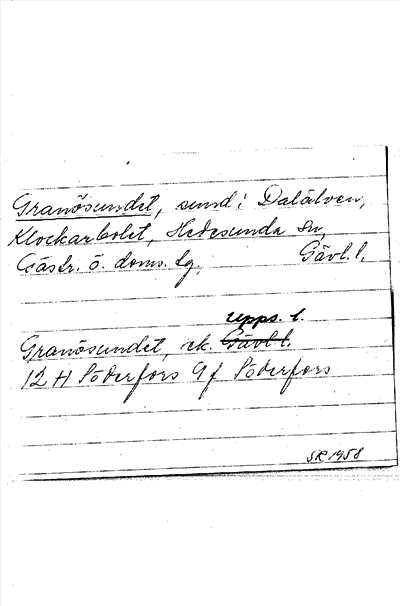 Granösundet, sund i Dalälven,
Klockarbolet, Hedesunda sn,
Gästr. ö. doms. tg. Gävl. l.
Upps. l.
Granösundet, ek. Gävl. l.
12 H Söderfors 9f Söderfors
SR 1958